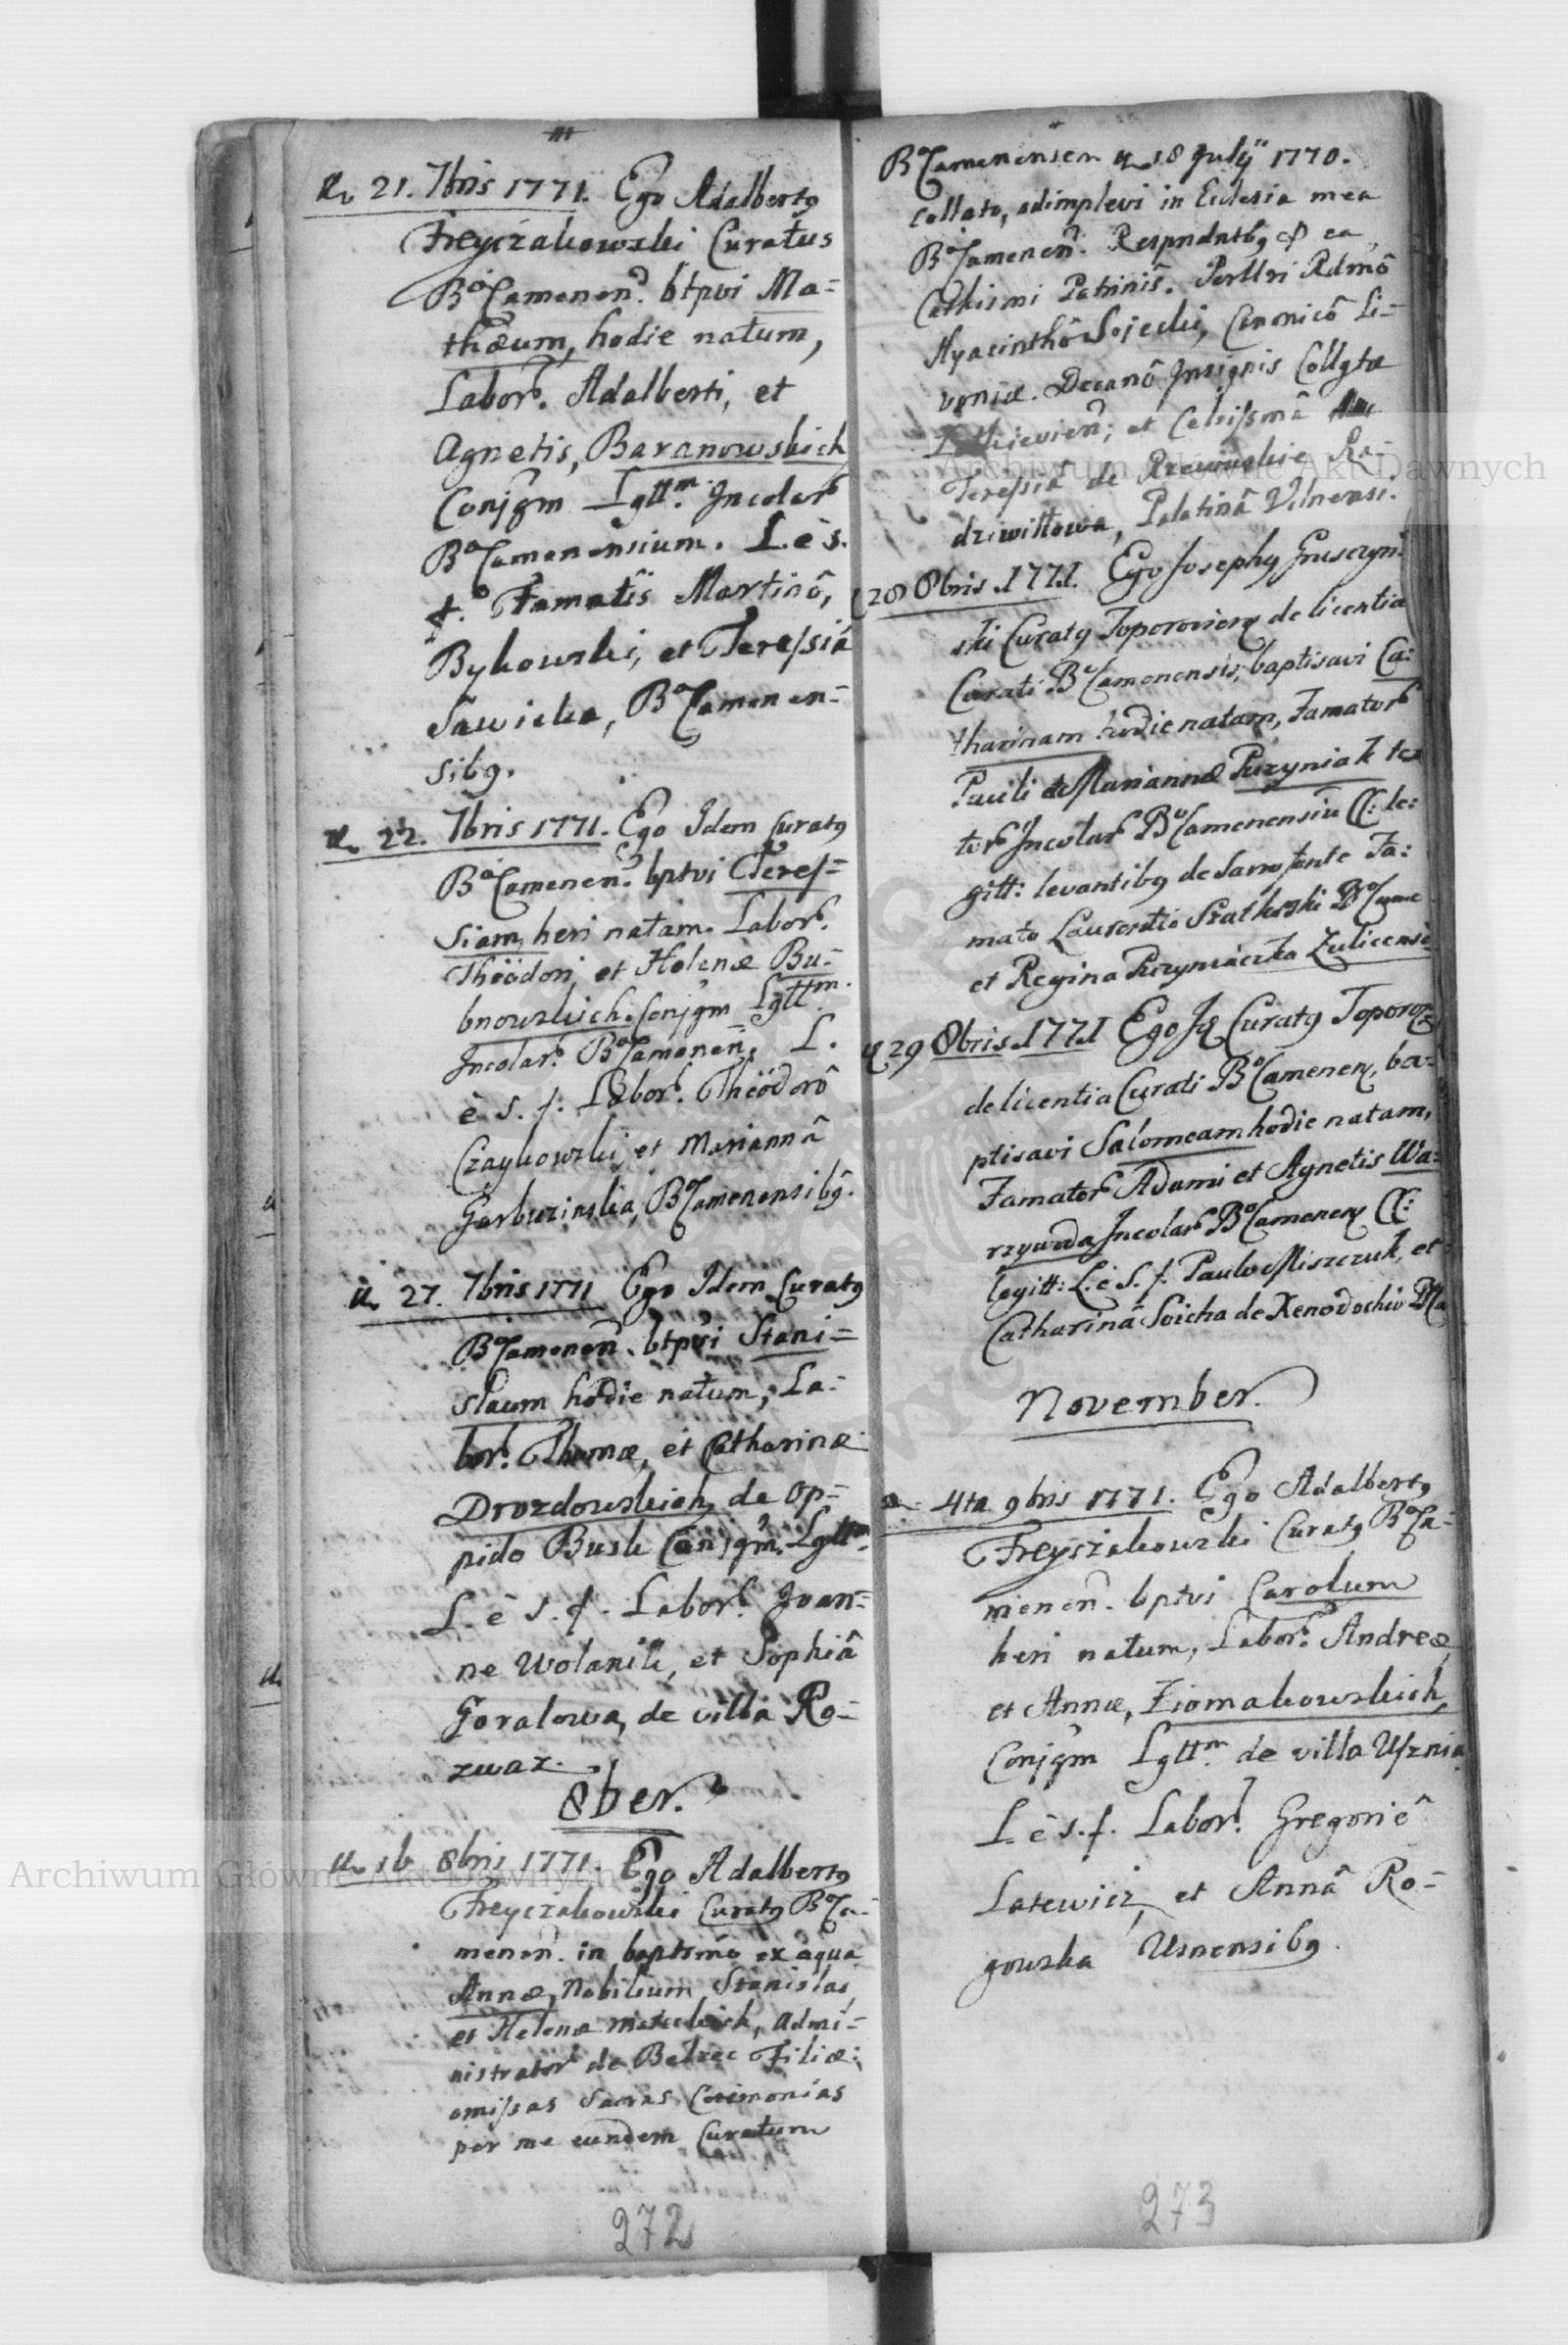 21. 7bris 1771. Ego Adalbertꝯ
Freyczakowski Curatus
BoCamenen. btpvi Ma=
thæum, hodie natum,
Labor. Adalberti, et
Agnetis, Baranowskich
Conjgm Lgttm. Incolar
BoCamenensium. L. è s.
f. Famatis Martinô,
Bykowski, et Teressiâ
Sawicka, BoCamenen=
sibꝯ.
22. 7bris 1771. Ego Idem Curatꝯ
BoCamenen. bptvi Teres=
siam, heri natam. Labor.
Theodori, et Helenæ Bu=
bnowskich. Conjgm Lgttm.
Incolar. BoCamenen. L.
è s. f. Labor. Theodorô
Czaykowski, et Mariannâ
Garbuzinska, BoCamenensibꝯ.
27. 7bris 1771 Ego Idem Curatꝯ
BoCamenen. btpvi Stani=
slaum hodie natum, La=
bor. Thomæ, et Catharinæ
Drozdowskich, de op=
pido Busk Conjgm. Lgttm.
L. è s. f. Labor. Joan=
ne Wolanik, et Sophiâ
Goralowa, de villa Ro=
zwaz.
8ber.
16 8bris 1771. Ego Adalbertꝯ
Freyczakowski Curatꝯ BoCa=
menen. in baptismo ex aqua
Annæ, Nobilium Stanislai
et Helenæ, admi=
nistrator de Belzec Filiæ;
omissas Sacras Cerimonias
per me eundem Curatum
272
BoCamenensem 18 Julÿ 1770.
collato, adimplevi in Eclesia mea
BoCamenen. ea
Patrinis. Perllri Rdmô
Hyacinthô Sojecki, Canonicô Li=
voniæ. Decanô Insignis Collgtæ
et Celsissmâ
Teressiâ de Rzewuskie Ra=
dziwiłłowa, Palatinâ Vilnensi.
28 8bris 1771. Ego Josephꝯ Gruszczyń=
ski Curatꝯ Toporovien de licentia
Curati BoCamenensis, baptisavi Ca=
tharinam hodie natam, Famator
Pauli et Mariannæ Puzyniak
Incolar BoCamenensiu CC: le:
gitt: levantibꝯ de Sacro fonte Fa:
mato Laurentio BoCamene
et Regina Puzyniaczka Zulicensi
29 8bris 1771 Ego Curatꝯ Toporov
de licentia Curati BoCamenen, ba=
ptisavi Salomeam hodie natam,
Famator Adami et Agnetis Wa=
rzywoda Incolar BoCamenen CC:
legitt: L. è S. f. Paulo Miszczuk, et
Catharinâ Soicha de Xenodochio
November.
4ta 9bris 1771. Ego Adalbertꝯ
Freyszakowski Curatꝯ BoCa=
menen. bptvi Carolum
heri natum, Labor. Andreæ
et Annæ, Ziomakowskich,
Conjgm Lgttm. de villa Usznia
L. è s. f. Labor. Gregoriô
Latewicz, et Annâ Ro=
gowska Usnensibꝯ.
273
Archiwum Główne Akt Dawnych
Archiwum Główne Akt Dawnych